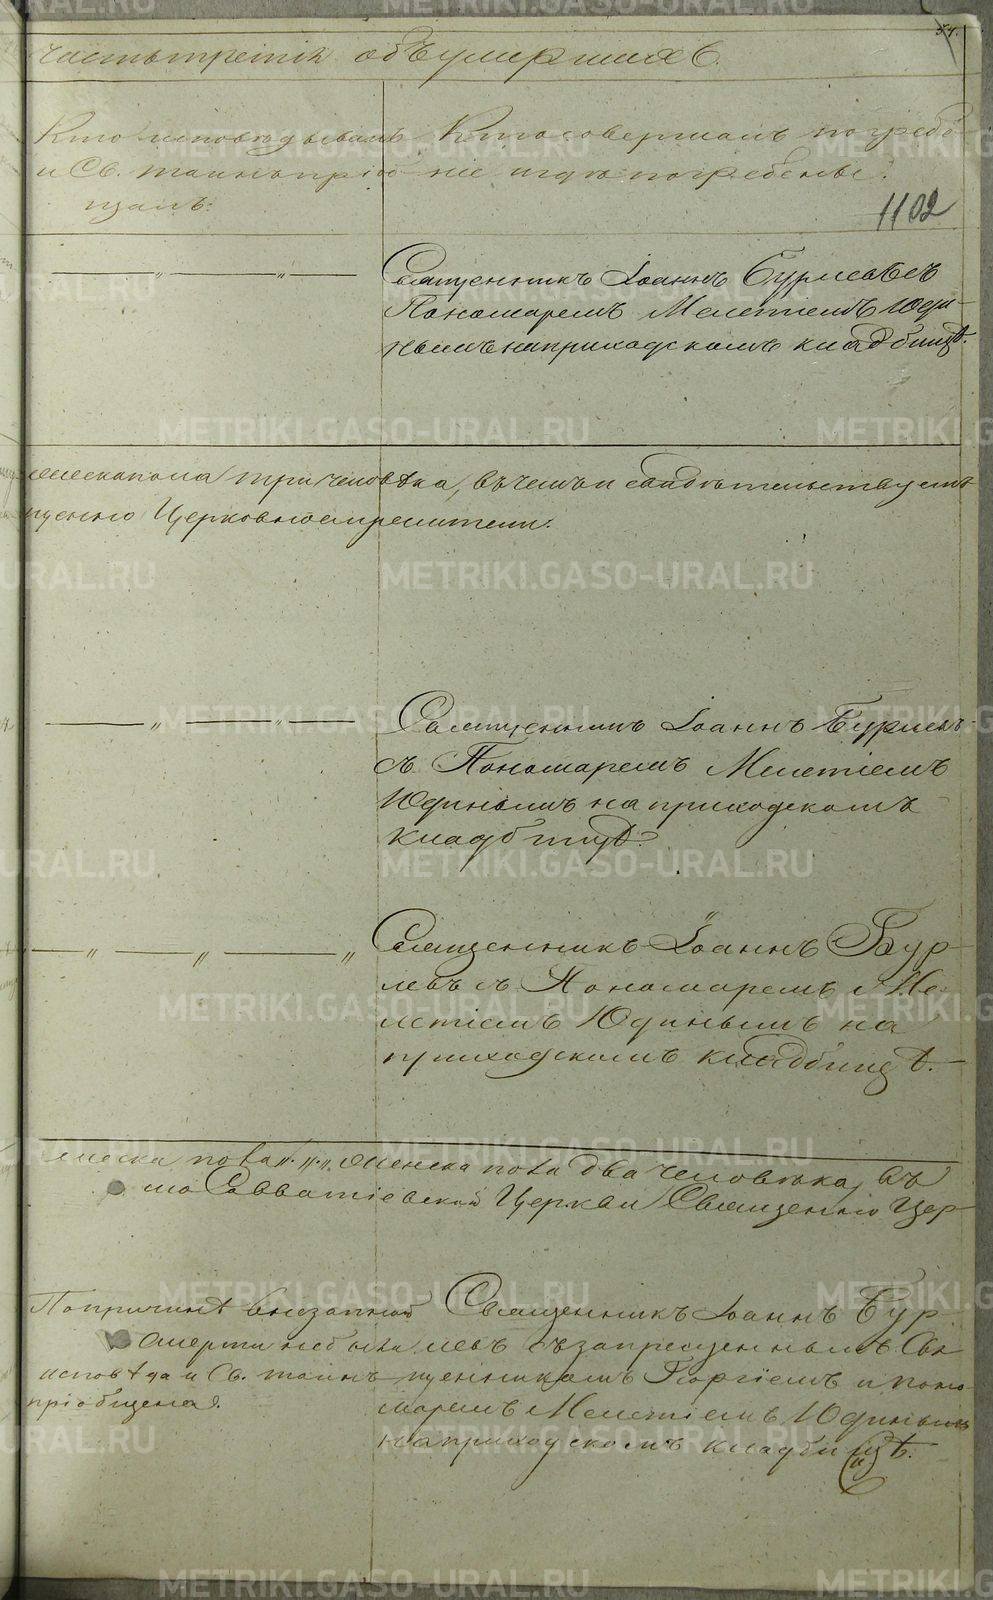 54.
часть третія объ умершихъ.
Кто исповѣдывалъ
и Св. таинъ пріоб
щалъ.
Кто совершалъ погребе
ніе и гдѣ погребены.
1102
Священникъ Іоаннъ Бурлевъ съ
Пономаремъ Мелетіемъ Юди
нымъ на приходскомъ кладбищѣ.
пола три человѣка, въ чемъ и свидѣтельствуемъ
Церковнослужители.
Священникъ Іоаннъ Бурлевъ
съ Пономаремъ Мелетіемъ
Юдинымъ на приходскомъ
кладбищѣ.
Священникъ Іоаннъ Бур
левъ съ Пономаремъ Ме
летіемъ Юдинымъ на
приходскомъ кладбищѣ.
мужеска пола женска пола два человѣка, въ
Савватіевской Церкви Священно Цер
По причинѣ внезапной
смерти не была
исповѣдана и Св. таинъ
пріобщена.
Священникъ Іоаннъ Бур
левъ съ запрещеннымъ Свя
щенникомъ Георгіемъ и поно
маремъ Мелетіемъ Юдинымъ
на приходскомъ кладбищѣ.
METRIKI.GASO-URAL.RU